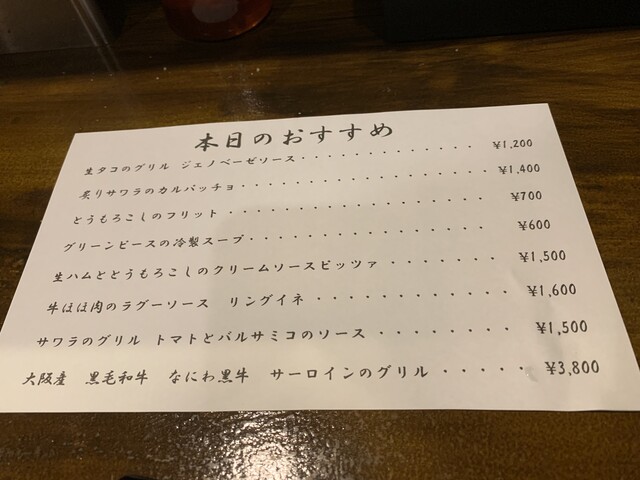 本日のおすすめ
生タコのグリル ジェノベーゼソース・・・・・・・・・・・・・ ¥1,200
炙りサワラのカルパッチョ・・・・・・・・・・・・・・・・・・ ¥1,400
とうもろこしのフリット・・・・・・・・・・・・・・・・ ¥700
グリーンピースの冷製スープ・・・・・・・・・・・・・・・ ¥600
生ハムととうもろこしのクリームソースピッツァ・・・・・・・ ¥1,500
牛ほほ肉のラグーソース リングイネ・・・・・・・・・・・ ¥1,600
サワラのグリル トマトとバルサミコのソース・・・・・・・・ ¥1,500
大阪産 黒毛和牛 なにわ黒牛 サーロインのグリル・・・・・ ¥3,800